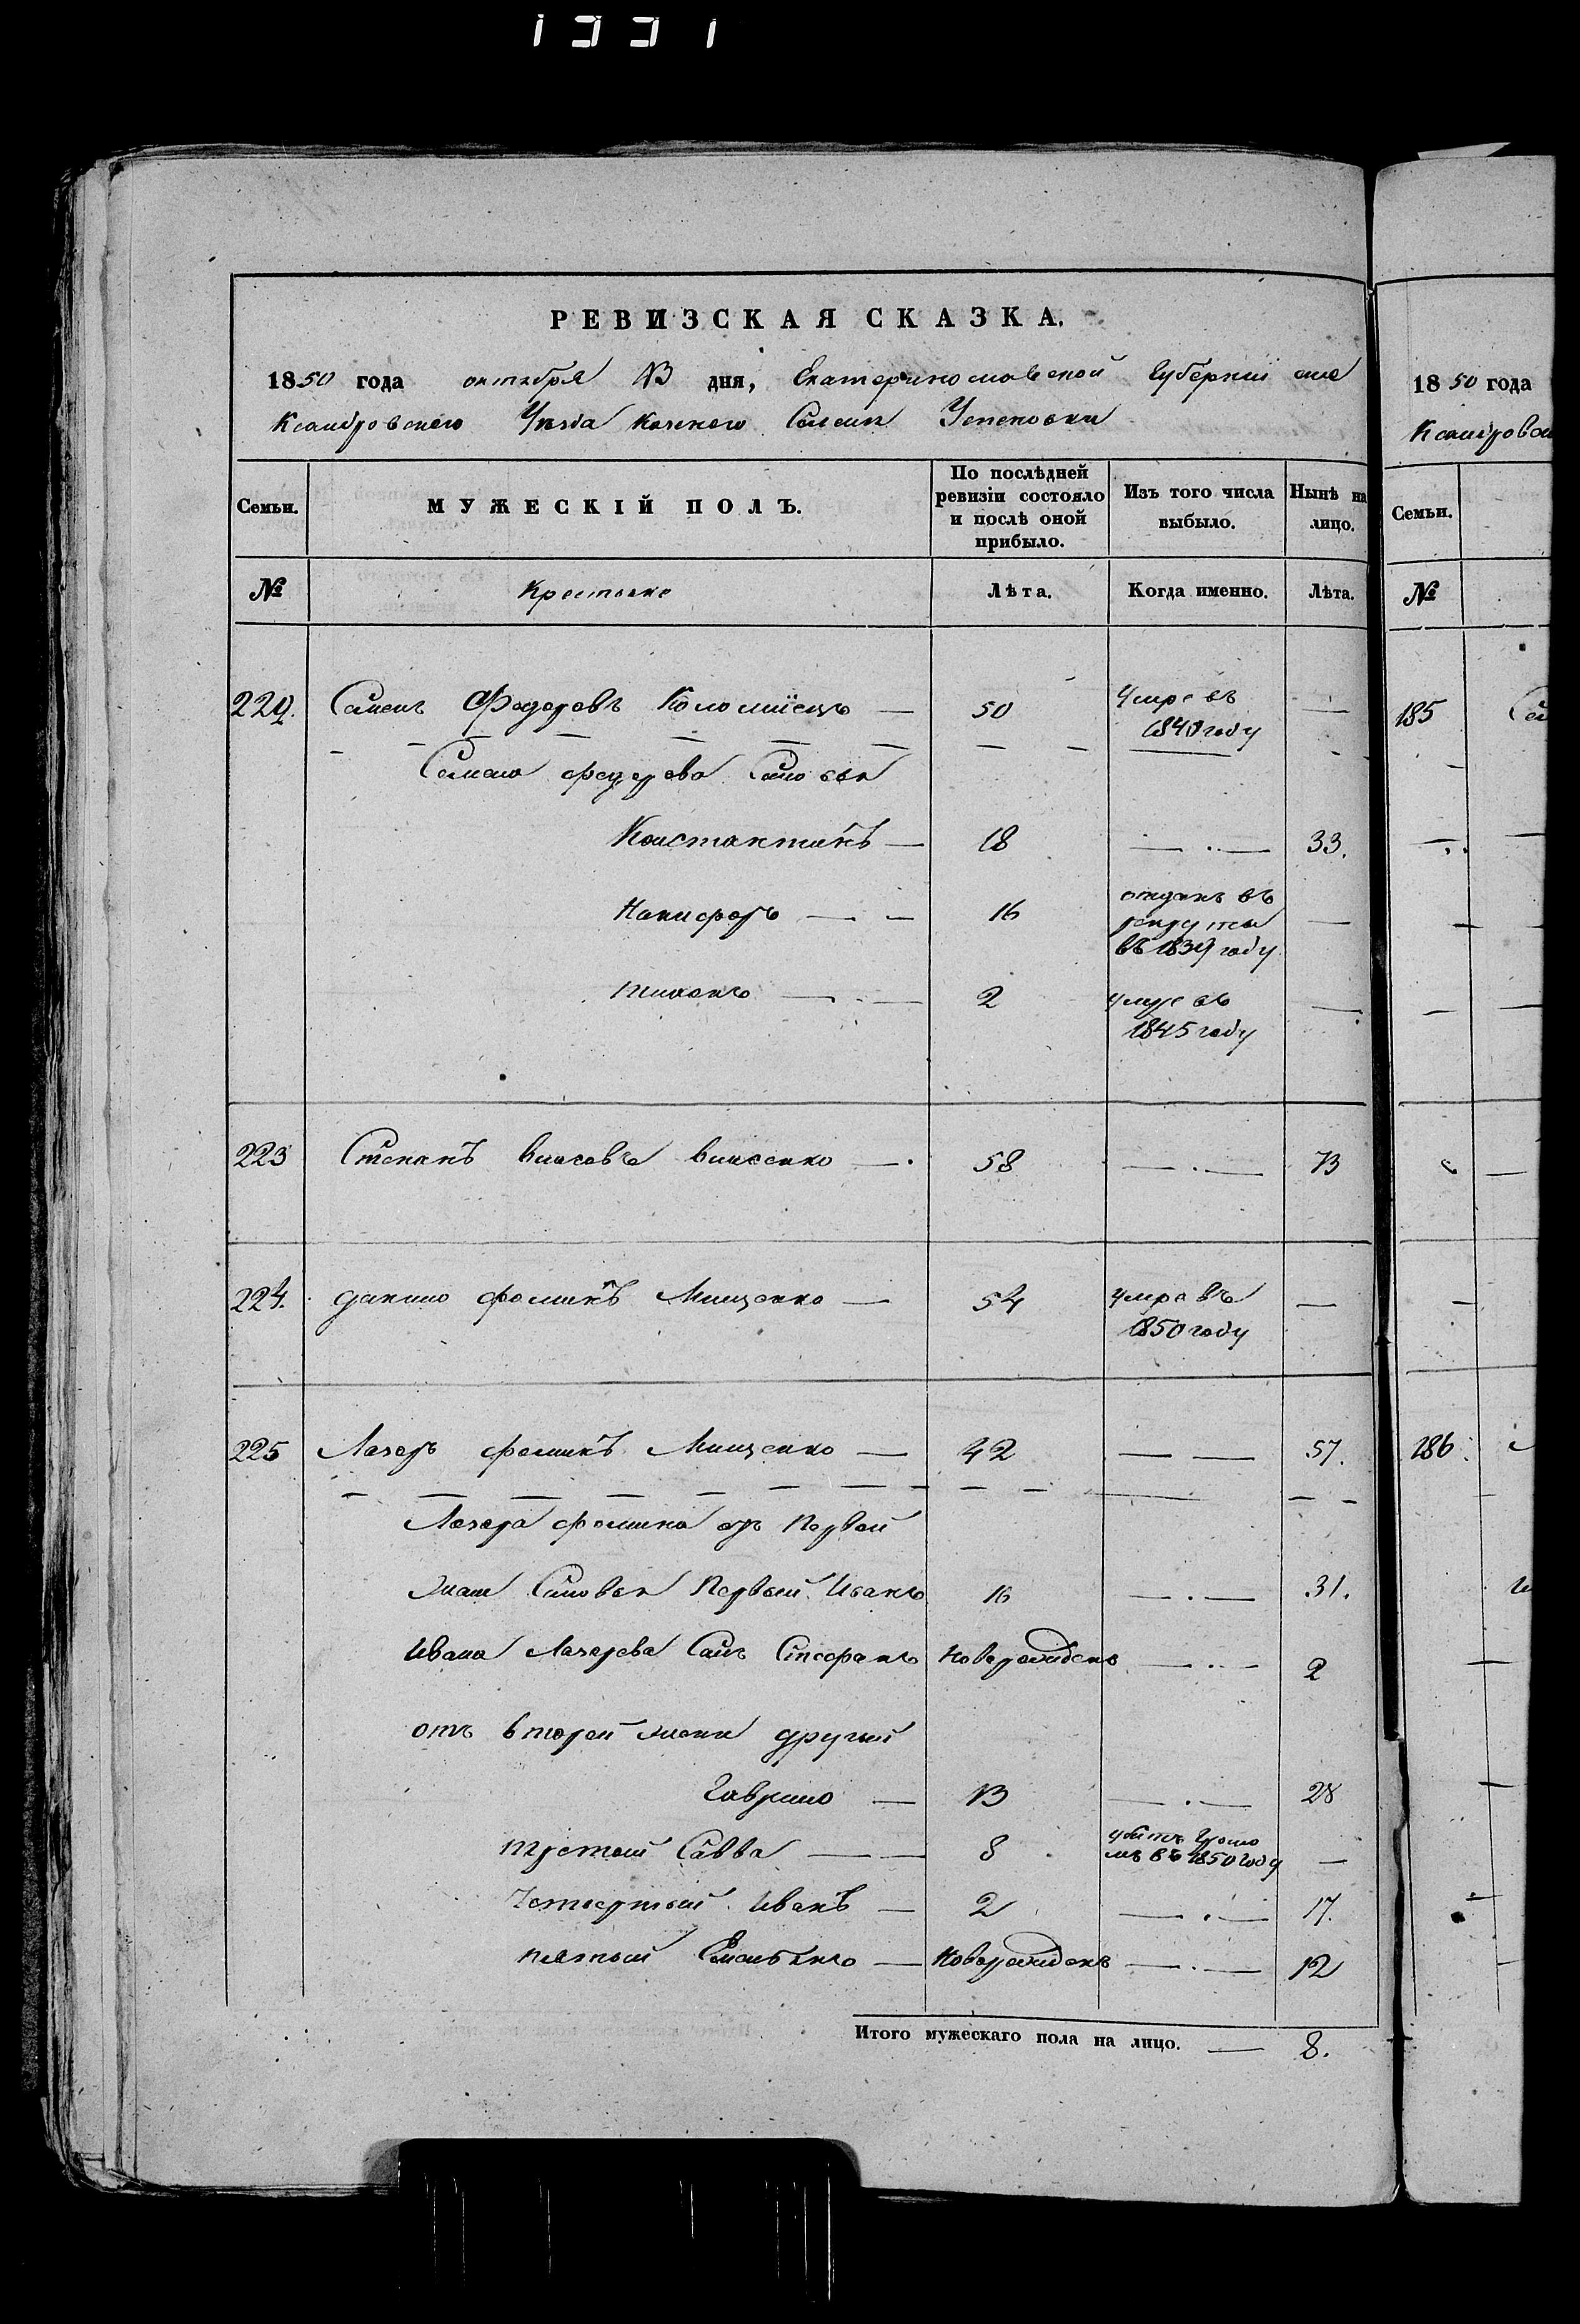 1331
РЕВИЗСКАЯ СКАЗКА.
1850 года октября 13 дня, Екатеринославской Губернiи Але
ксандровского Уѣзда Казенного Селенiя Успеновки
Семьи. МУЖЕСКIЙ ПОЛЪ. По послѣдней ревизiи состояло и послѣ оной прибыло. Изъ того числа выбыло. Нынѣ на лицо.
№ Крестьяне Лѣта. Когда именно. Лѣта.
222. Семенъ Федоровъ Коломiецъ — 50 Умре въ 1840 году —
Семена Федорова Сыновья
Константинъ — 18 — . — 33.
Никифоръ — — 16 отданъ въ рекруты въ 1839 году —
Тихонъ — . — 2 умре въ 1845 году —
223 Степанъ Власовъ Власенко — . 58 — . — 73
224. Данило Фоминъ Мищенко — 54 умре въ 1850 году —
225 Лазарь Фоминъ Мищенко — 42 — — 57.
Лазаря Фомина отъ Первой
жены Сыновья Первый Иванъ 16 — . — 31.
Ивана Лазарева Сынъ Стефанъ Новорожденъ — . — 2
отъ второй жены другий
Гаврило — 13 — . — 28
третий Савва — — 8 убитъ Громомъ въ 1850 году —
Четвертый Иванъ — 2 — . — 17.
пятый Емельянъ — Новорожденъ — . — 12
Итого мужескаго пола на лицо. — 8.
1850 года
Ксандровск
Семьи.
№
185
186